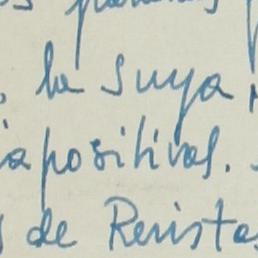 la suya,
iapositivas.
de Revistas